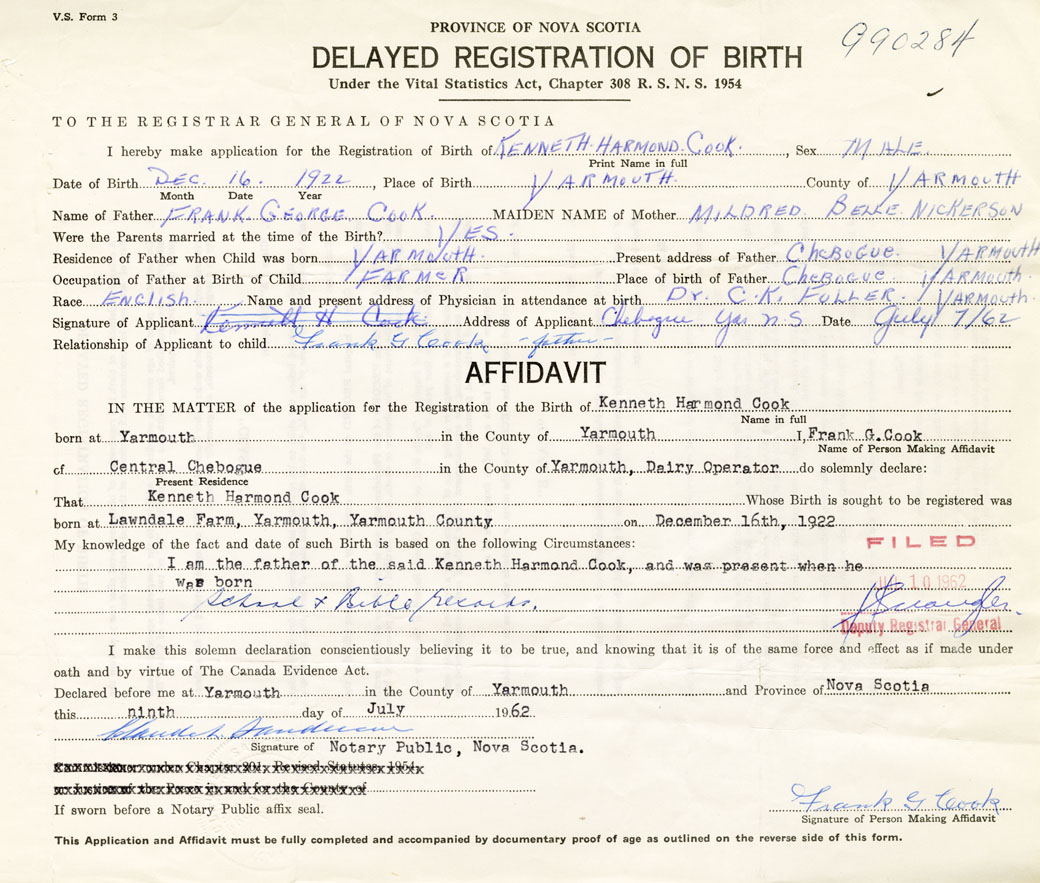 V.S. Form 3
PROVINCE OF NOVA SCOTIA
990284
DELAYED REGISTRATION OF BIRTH
Under the Vital Statistics Act, Chapter 308 R. S. N. S. 1954
TO THE REGISTRAR GENERAL OF NOVA SCOTIA
I hereby make application for the Registration of Birth of KENNETH HARMOND COOK, Sex MALE
Print Name in full
Date of Birth DEC. 16. 1922, Place of Birth YARMOUTH. County of YARMOUTH
Month Date Year
Name of Father FRANK GEORGE COOK. MAIDEN NAME of Mother MILDRED BELLE NICKERSON
Were the Parents married at the time of the Birth? YES.
Residence of Father when Child was born YARMOUTH. Present address of Father CHEBOGUE. YARMOUTH
Occupation of Father at Birth of Child FARMER Place of birth of Father CHEBOGUE YARMOUTH.
Race ENGLISH. Name and present address of Physician in attendance at birth Dr. C.K. FULLER. YARMOUTH.
Signature of Applicant Kenneth H Cook Address of Applicant Chebogue Yar N.S Date July 7/62
Relationship of Applicant to child Frank G Cook - father -
AFFIDAVIT
IN THE MATTER of the application for the Registration of the Birth of Kenneth Harmond Cook
Name in full
born at Yarmouth in the County of Yarmouth I, Frank G. Cook
Name of Person Making Affidavit
of Central Chebogue in the County of Yarmouth, Dairy Operator do solemnly declare:
Present Residence
That Kenneth Harmond Cook Whose Birth is sought to be registered was
born at Lawndale Farm, Yarmouth, Yarmouth County on December 16th, 1922
My knowledge of the fact and date of such Birth is based on the following Circumstances:
FILED
I am the father of the said Kenneth Harmond Cook, and was present when he
was born
10 1962
School & Bible records.
Deputy Registrar General
I make this solemn declaration conscientiously believing it to be true, and knowing that it is of the same force and effect as if made under
oath and by virtue of The Canada Evidence Act.
Declared before me at Yarmouth in the County of Yarmouth and Province of Nova Scotia
this ninth day of July 1962
Signature of Notary Public, Nova Scotia.
If sworn before a Notary Public affix seal.
Frank G Cook
Signature of Person Making Affidavit
This Application and Affidavit must be fully completed and accompanied by documentary proof of age as outlined on the reverse side of this form.